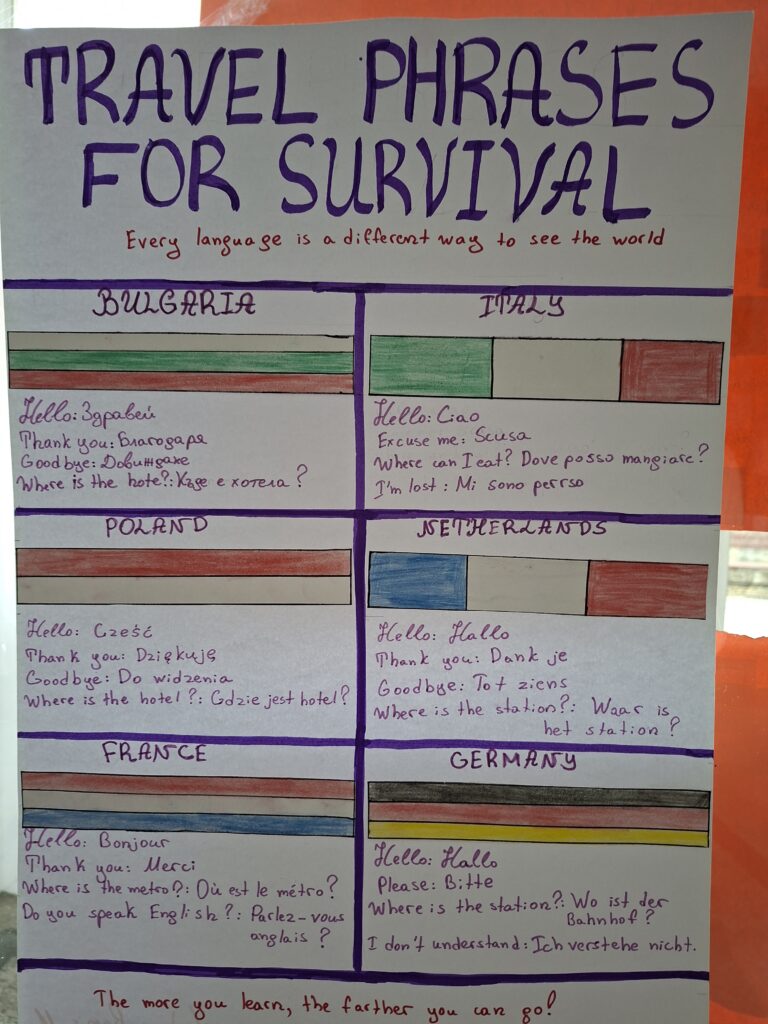 TRAVEL PHRASES
FOR SURVIVAL
Every language is a different way to see the world
BULGARIA
Hello: Здравей
Thank you: Благодаря
Goodbye: Довиждане
Where is the hote?: Къде е хотела?
ITALY
Hello: Ciao
Excuse me: Scusa
Where can I eat? Dove posso mangiare?
I'm lost: Mi sono perrso
POLAND
Hello: Cześć
Thank you: Dziękuję
Goodbye: Do widzenia
Where is the hotel?: Gdzie jest hotel?
NETHERLANDS
Hello: Hallo
Thank you: Dank je
Goodbye: Tot ziens
Where is the station?: Waar is
het station?
FRANCE
Hello: Bonjour
Thank you: Merci
Where is the metro?: Où est le métro?
Do you speak English?: Parlez-vous
anglais?
GERMANY
Hello: Hallo
Please: Bitte
Where is the station?: Wo ist der
Bahnhof?
I don't understand: Ich verstehe nicht.
The more you learn, the farther you can go!